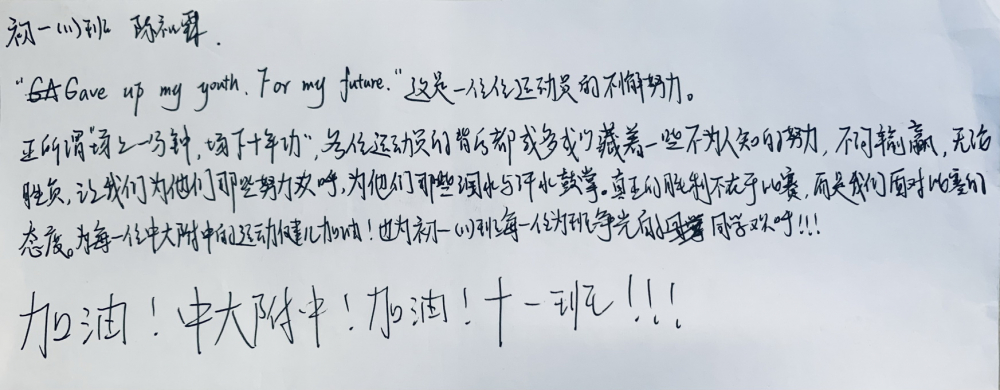 初一(11)班 陈祉霏.
"Gave up my youth. For my future."这是一位位运动员的不懈努力。
正所谓"场上一分钟,场下十年功",各位运动员的背后都或多或少藏着一些不为人知的努力,不问输赢,无论
胜负,让我们为他们那些努力欢呼,为他们那些泪水与汗水鼓掌。真正的胜利不在于比赛,而是我们面对比赛的
态度。为每一位中大附中的运动健儿加油!也为初一(11)班每一位为班争光的同学欢呼!!!
加油!中大附中!加油!十一班!!!